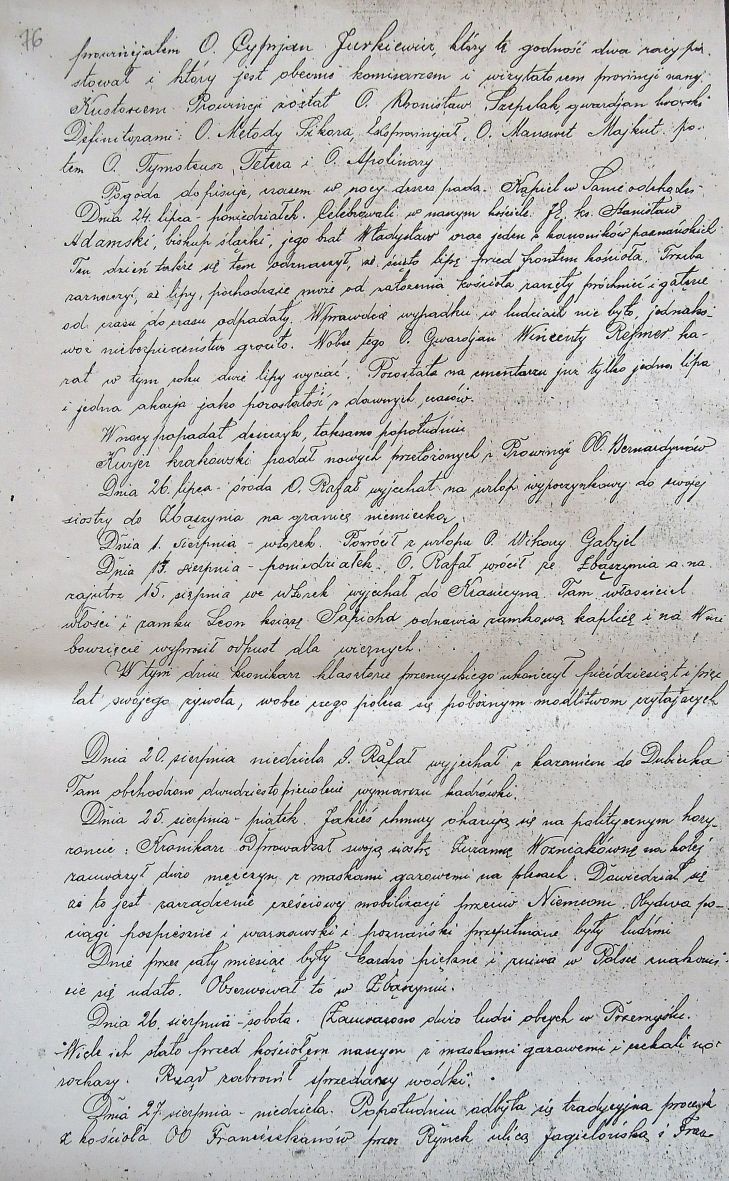 76
prowincjałem O. Cyprjan Jurkiewicz, który tę godność dwa razy pia-
stował i który jest obecnie komisarzem i wizytatorem prowincji naszej.
Kustoszem Prowincji został O. Bronisław Szepelak, gwardjan lwowski
Definitorami: O. Metody Sikora, Eksprowincjał, O. Manswet Majkut. po-
tem O. Tymoteusz Tetera i O. Apolinary
Pogoda dopisuje, czasem w nocy deszcz pada. Kąpiel w Sanie
Dnia 24. lipca - poniedziałek. Celebrowali w naszym kościele. JE. ks. Stanisław
Adamski, biskup śląski, jego brat Władysław oraz jeden z kanoników poznańskich
Ten dzień także się tem odznaczył, że ścięto lipę przed frontem kościoła. Trzeba
zaznaczyć, że lipy, pochodzące może od założenia kościoła zaczęły próchnieć i gałęzie
od czasu do czasu odpadały. Wprawdzie wypadku w ludziach nie było, jednako-
woż niebezpieczeństwo groziło. Wobec tego O. Gwardjan Wincenty Rejmer ka-
zał w tym roku dwie lipy wyciąć. Pozostała na cmentarzu już tylko jedna lipa
i jedna akacja jako pozostałość z dawnych czasów.
W nocy popadał deszczyk, taksamo popołudniu
Kurjer krakowski podał nowych przełożonych z Prowincji OO. Bernardynów
Dnia 26. lipca - środa O. Rafał wyjechał na urlop wypoczynkowy do swojej
siostry do Zbąszynia na granicę niemiecką.
Dnia 1. sierpnia - wtorek. Powrócił z urlopu O. Wikary Gabrjel
Dnia sierpnia - poniedziałek. O. Rafał wrócił ze Zbąszynia a na-
zajutrz 15. sierpnia we wtorek wyjechał do Krasiczyna. Tam właściciel
włości i zamku Leon książę Sapieha odnawia zamkową kaplicę i na Wnie-
bowzięcie wyprosił odpust dla wiernych.
W tym dniu kronikarz klasztoru przemyskiego ukończył pięćdziesiąt i pięć
lat swojego żywota, wobec czego poleca się pobożnym modlitwom czytających
Dnia 20. sierpnia niedziela O. Rafał wyjechał z kazaniem do Dubiecka
Tam obchodzono dwudziestopięciolecie wymarszu kadrówki.
Dnia 25. sierpnia - piątek. Jakieś chmury okazują się na politycznym hory-
zoncie: Kronikarz odprowadzał swoją siostrę Zuzannę Woźniakównę na kolej
zauważył dużo mężczyzn z maskami gazowemi na plecach. Dowiedział się
że to jest zarządzenie częściowej mobilizacji przeciw Niemcom. Obydwa po-
ciągi pospieszne i warszawski i poznański przepełnione były ludźmi
Dnie przez cały miesiąc były bardzo piękne i żniwa w Polsce znakomi-
cie się udało. Obserwował to w Zbąszyniu.
Dnia 26. sierpnia - sobota. Zauważono dużo ludzi obcych w Przemyślu.
Wiele ich stało przed kościołem naszym z maskami gazowemi i czekali na
rozkazy. Rząd zabronił sprzedaży wódki.
Dnia 27. sierpnia - niedziela. Popołudniu odbyła się tradycyjna procesja
z kościoła OO Franciszkanów przez Rynek ulicą Jagielońską i Fran-